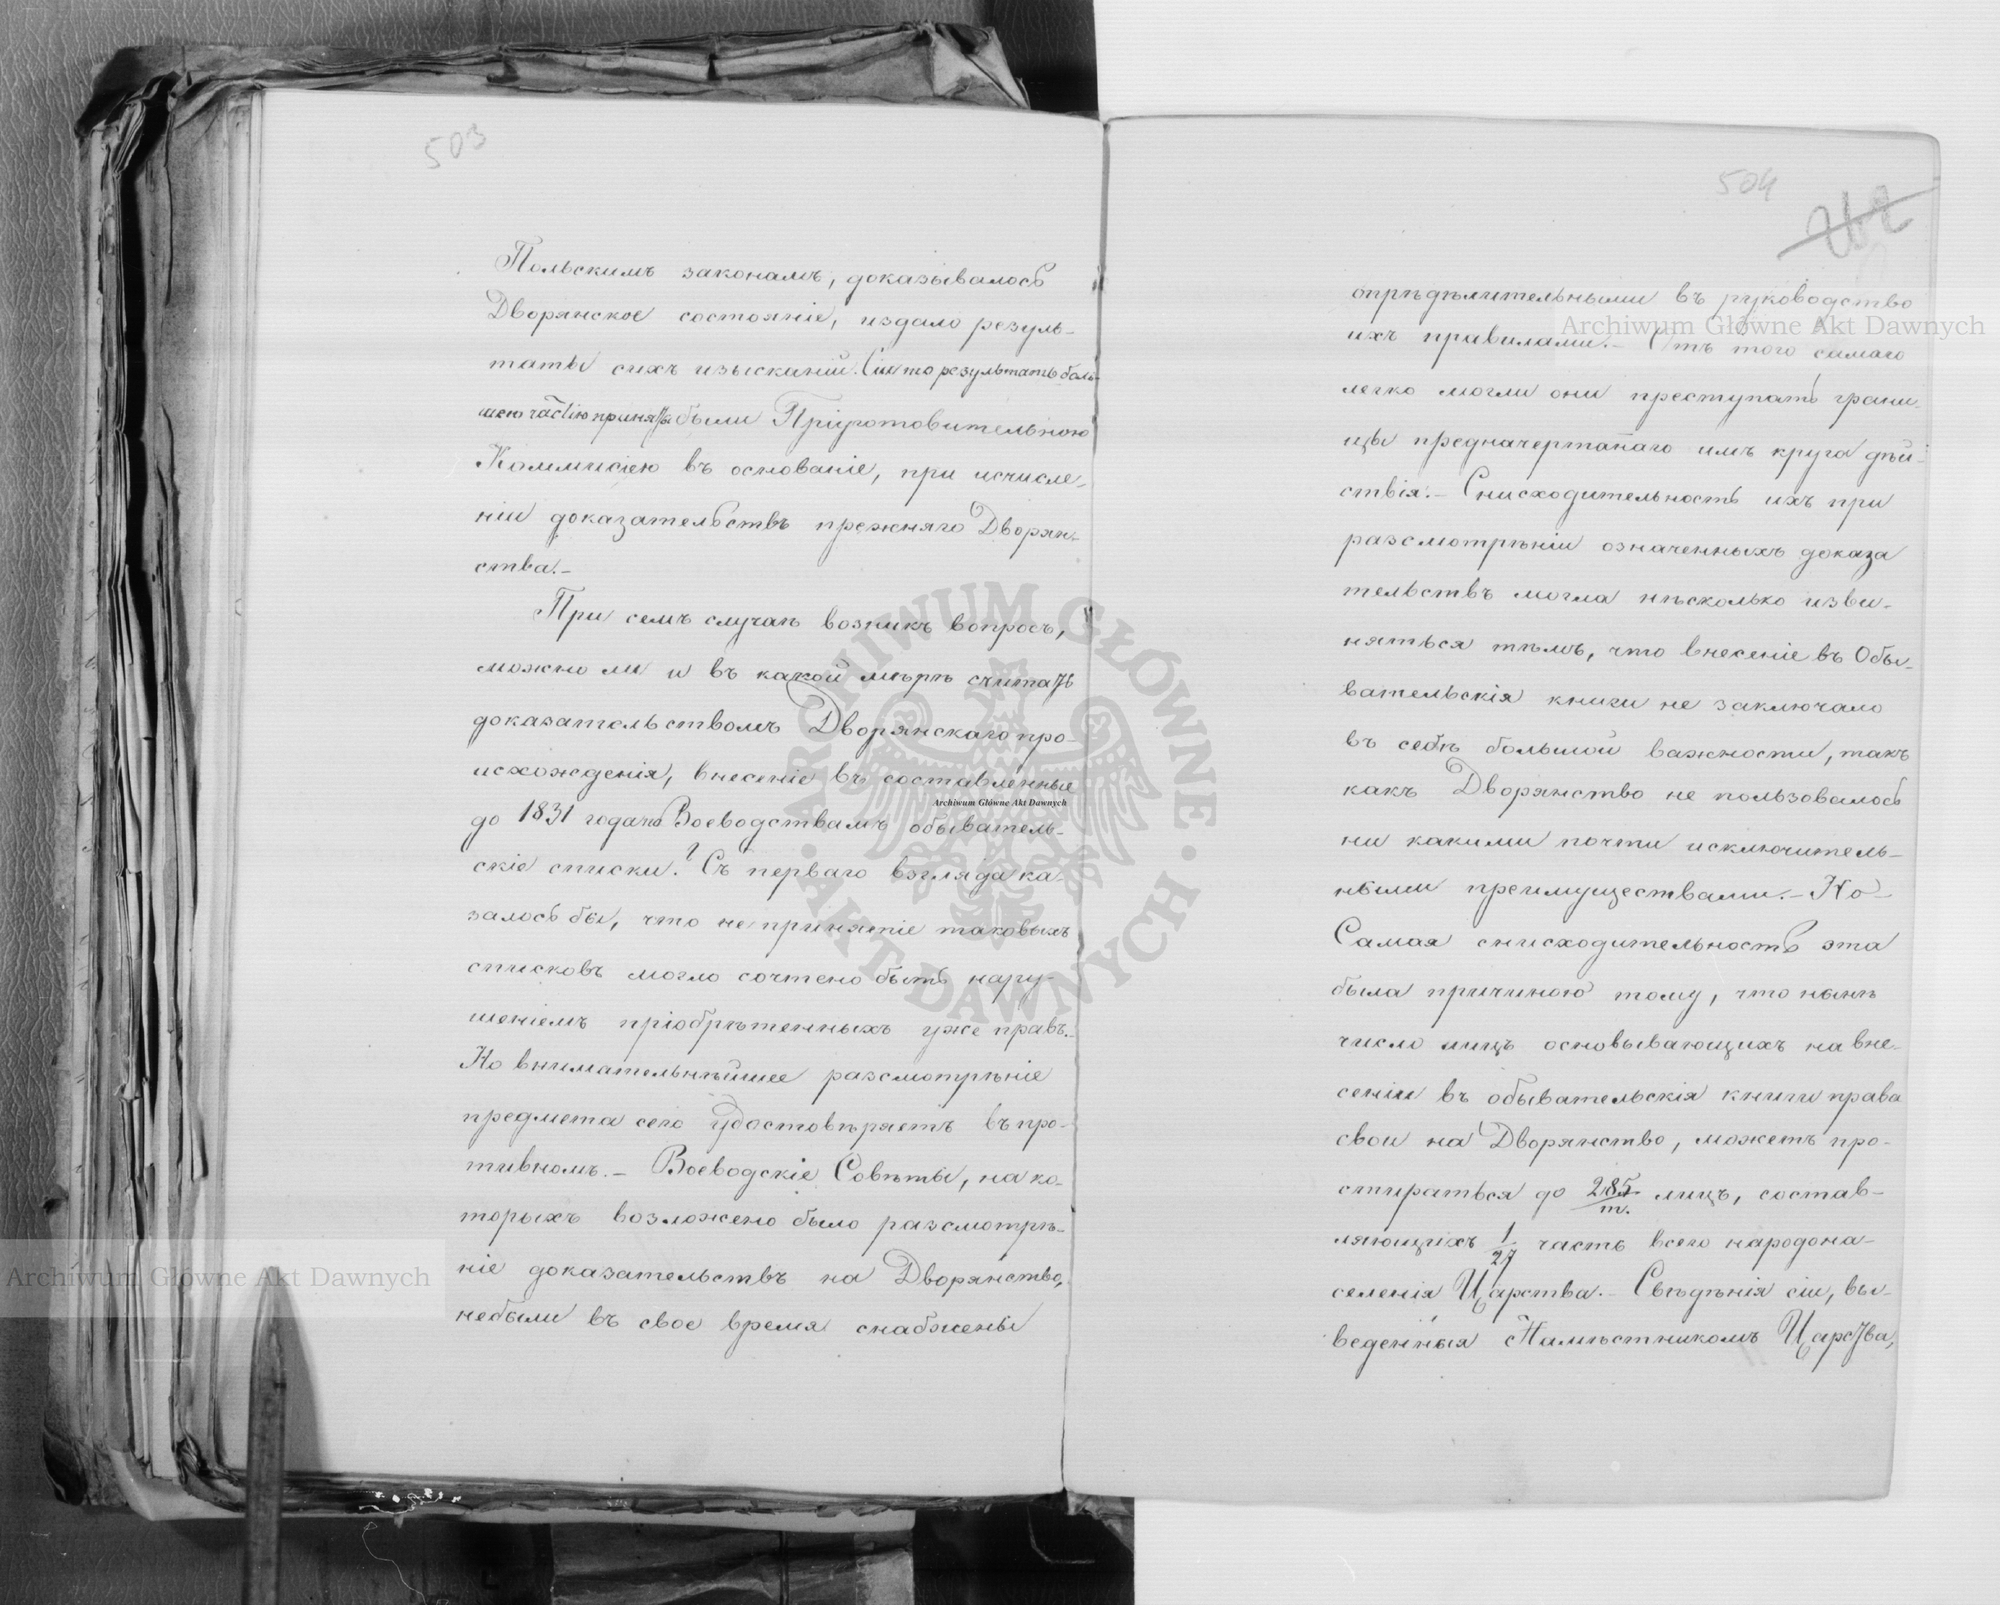 503
Польскимъ законамъ, доказывалось
Дворянское состояніе, издало резуль-
таты сихъ изысканій. Сіи то результаты боль-
шею частію приняты были Пріуготовительною
Коммисіею въ основаніе, при исчисле-
ніи доказательствъ прежняго Дворян-
ства.-
При семъ случаѣ возникъ вопросъ,
можно ли и въ какой мѣрѣ считать
доказательствомъ Дворянскаго про-
исхожденія, внесеніе въ составленные
до 1831 года по Воеводствамъ обыватель-
скіе списки? Съ перваго взгляда ка-
залось бы, что не принятіе таковыхъ
списковъ могло сочтено быть нару-
шеніемъ пріобрѣтенныхъ уже правъ.-
Но внимательнѣйшее разсмотрѣніе
предмета сего удостовѣряетъ въ про-
тивномъ.- Воеводскіе Совѣты, на ко-
торыхъ возложено было разсмотрѣ-
ніе доказательствъ на Дворянство,
небыли въ свое время снабжены
504
262
опрѣдѣлительными въ руководство
ихъ правилами.- Отъ того самаго
легко могли они преступать грани-
цы предначертаннаго имъ круга дѣй-
ствія.- Снисходительность ихъ при
разсмотрѣніи означенныхъ доказа
тельствъ могла нѣсколько изви-
няться тѣмъ, что внесеніе въ Обы-
вательскія книги не заключало
въ себѣ большой важности, такъ
какъ Дворянство не пользовалось
ни какими почти исключитель-
ными преимуществами.- Но
Самая снисходительность эта
была причиною тому, что нынѣ
число лицъ основывающихъ на вне-
сеніи въ обывательскія книги права
свои на Дворянство, можетъ про-
стираться до 285/т. лицъ, состав-
ляющихъ 1/27 часть всего народона-
селенія Царства.- Свѣдѣнія сіи, вы-
веденныя Намѣстникомъ Царства,
Archiwum Główne Akt Dawnych
Archiwum Główne Akt Dawnych
Archiwum Główne Akt Dawnych
ARCHIWUM GŁÓWNE · AKT DAWNYCH ·